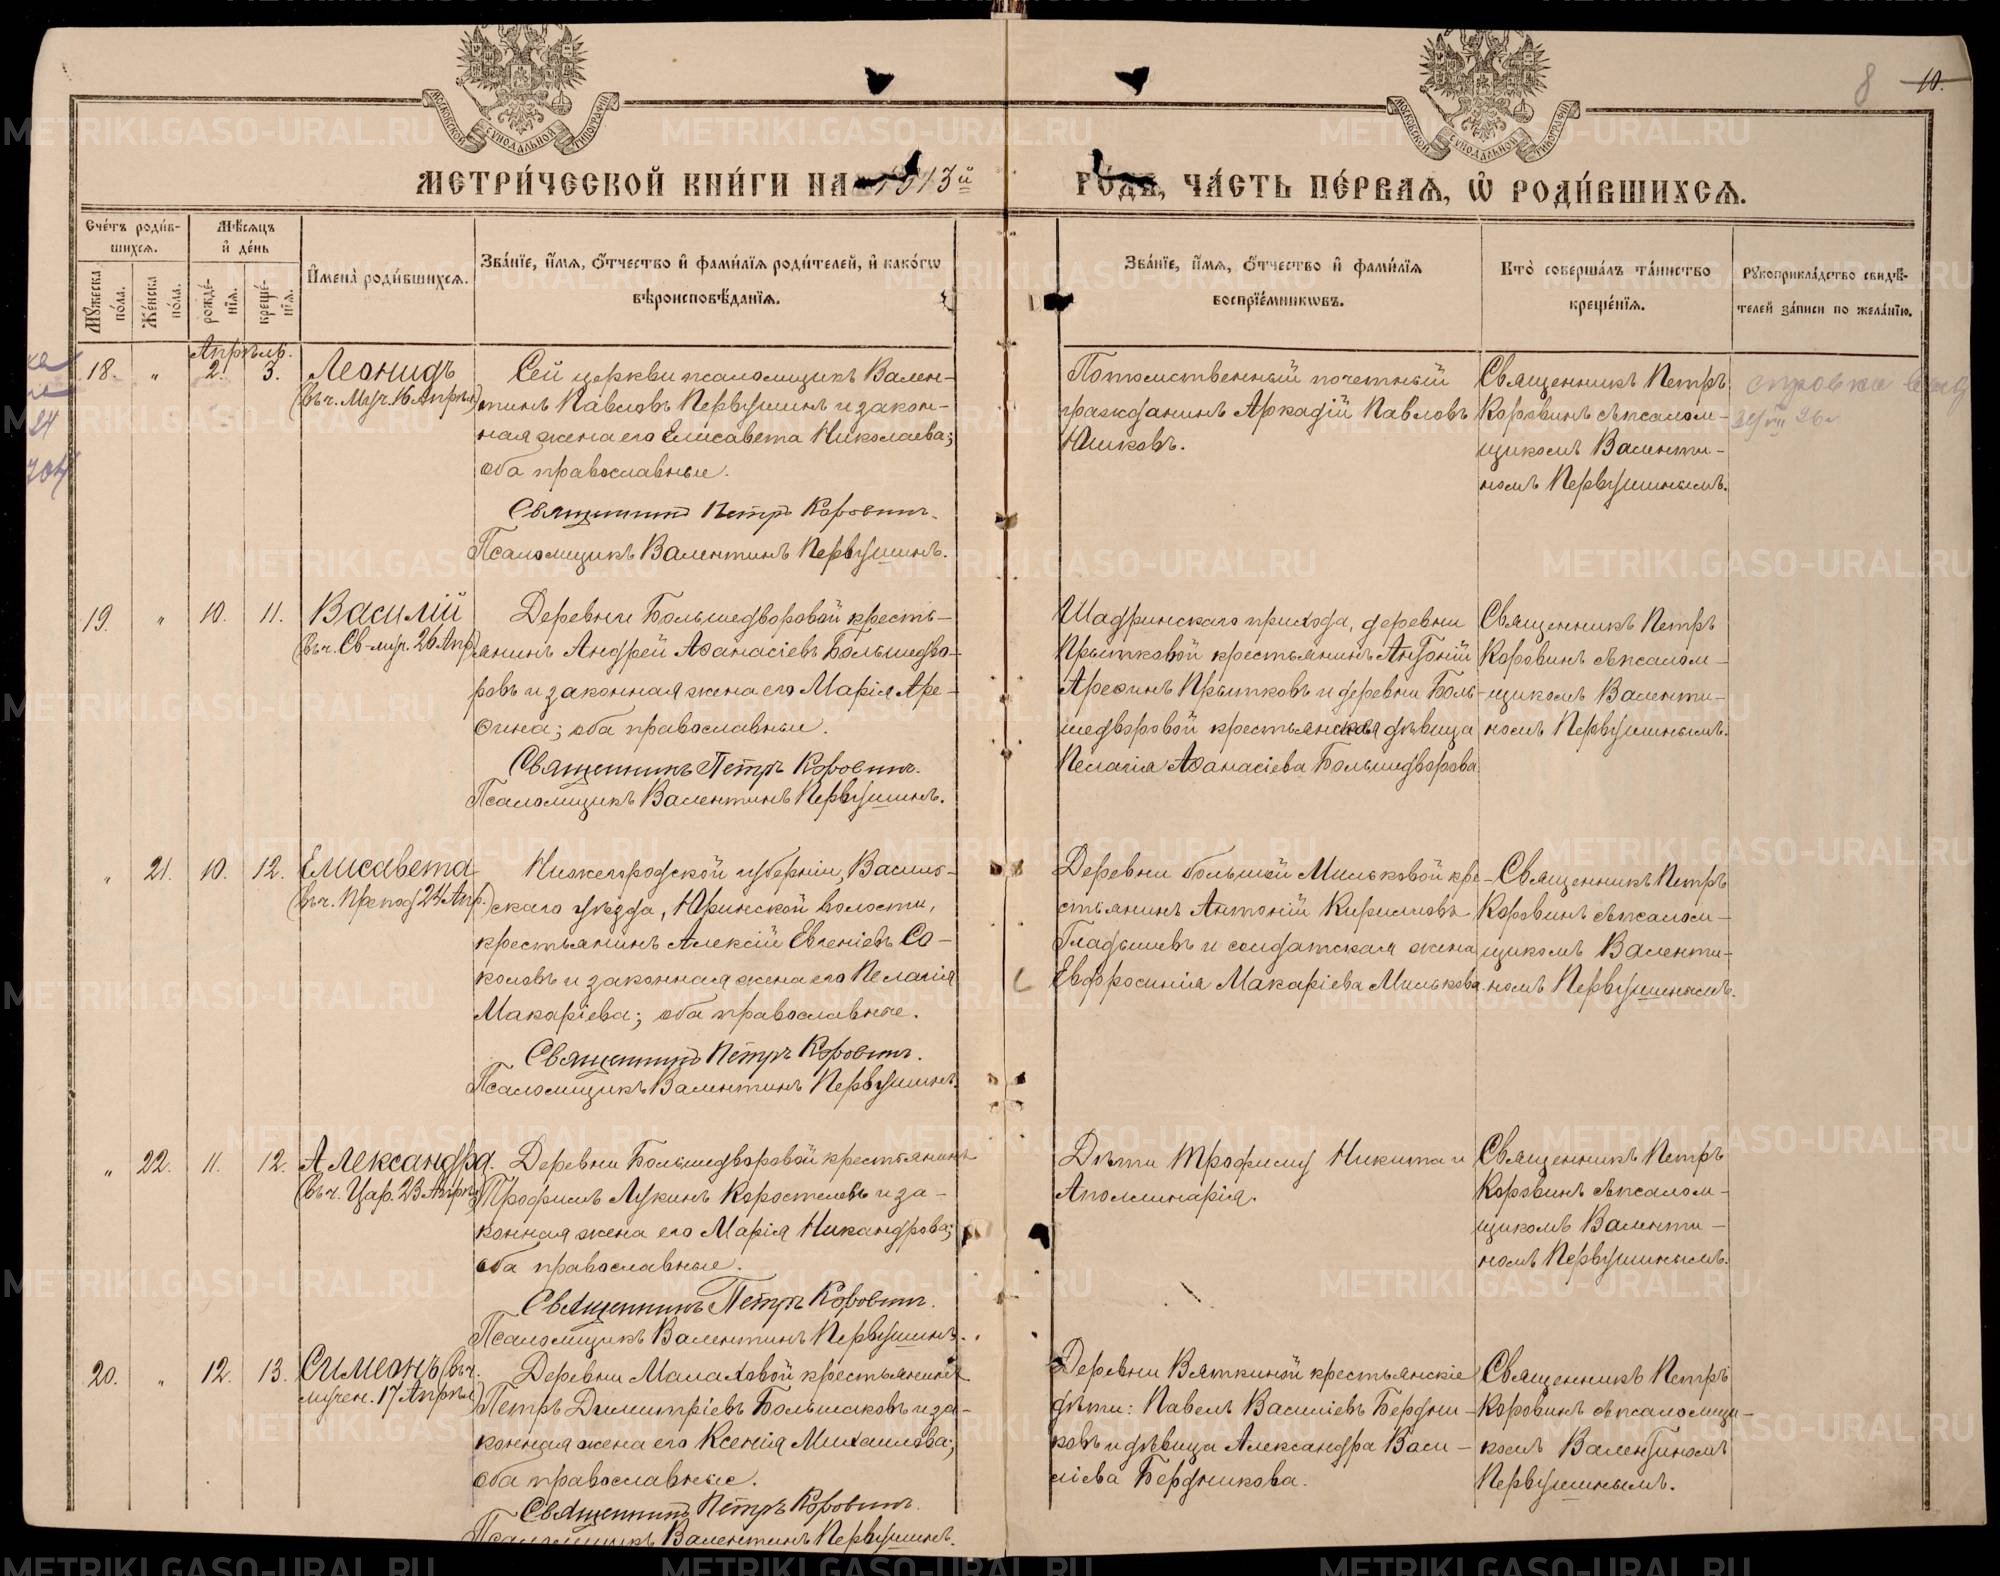 МОСКОВСКОЙ СУНОДАЛЬНОЙ ТИПОГРАФІИ
МОСКОВСКОЙ СУНОДАЛЬНОЙ ТИПОГРАФІИ
8 10.
МЕТРИ́ЧЕСКОЙ КНИ́ГИ НА 1913й
РО́ДЪ, ЧА́СТЬ ПЕ́РВАѦ, Ѡ҆ РОДИ́ВШИХСѦ.
Сче́тъ роди́в-
шихсѧ.
Мѣ́сѧцъ
и҆ де́нь
Мꙋ́жеска по́ла.
Же́нска по́ла.
рожде́-
нїѧ.
креще́-
нїѧ.
И҆мена̀ роди́вшихсѧ.
Зва́нїе, и҆́мѧ, ѻ҆́тчество и҆ фами́лїѧ роди́телей, и҆ како́гѡ
вѣроисповѣ́данїѧ.
Зва́нїе, и҆́мѧ, ѻ҆́тчество и҆ фами́лїѧ
воспрїе́мникѡвъ.
Кто̀ соверша́лъ та́инство
креще́нїѧ.
Рꙋкоприкла́дство свидѣ́-
телей за́писи по жела́нїю.
Апрѣль.
18. „ 2. 3. Леонидъ
(въ ч. Муч. 16 Апрѣл)
Сей церкви псаломщикъ Вален-
тинъ Павловъ Первушинъ и закон-
ная жена его Елисавета Николаева;
оба православные.
Священникъ Петръ Коровинъ.
Псаломщикъ Валентинъ Первушинъ.
Потомственный почетный
гражданинъ Аркадій Павловъ
Юшковъ.
Священникъ Петръ
Коровинъ съ псалом-
щикомъ Валенти-
номъ Первушинымъ.
19. „ 10. 11. Василій
(въ ч. Св-муч. 26 Апр)
Деревни Большедворовой кресть-
янинъ Андрей Аѳанасіевъ Большедво-
ровъ и законная жена его Марія Аре-
ѳина; оба православные.
Священникъ Петръ Коровинъ.
Псаломщикъ Валентинъ Первушинъ.
Шадринскаго прихода, деревни
Прытковой крестьянинъ Антоній
Ареѳинъ Прытковъ и деревни Боль-
шедворовой крестьянская дѣвица
Пелагія Аѳанасіева Большедворова
Священникъ Петръ
Коровинъ съ псалом-
щикомъ Валенти-
номъ Первушинымъ.
„ 21. 10. 12. Елисавета
(въ ч. Препод 24 Апр.)
Нижегородской губерніи, Василь-
скаго уѣзда, Юринской волости,
крестьянинъ Алексій Евгеніевъ Со-
коловъ и законная жена его Пелагія
Макаріева; оба православные.
Священникъ Петръ Коровинъ.
Псаломщикъ Валентинъ Первушинъ.
Деревни большей Мильковой кре-
стьянинъ Антоній Кирилловъ
Гладышевъ и солдатская жена
Евфросинія Макаріева Милькова.
Священникъ Петръ
Коровинъ съ псалом-
щикомъ Валенти-
номъ Первушинымъ.
„ 22. 11. 12. Александра.
(въ ч. Цар. 23 Апрѣл)
Деревни Большедворовой крестьянинъ
Трофимъ Лукинъ Коростелевъ и за-
конная жена его Марія Никандрова;
оба православные.
Священникъ Петръ Коровинъ.
Псаломщикъ Валентинъ Первушинъ.
Дѣти Трофиму Никита и
Аполлинарія.
Священникъ Петръ
Коровинъ съ псалом-
щикомъ Валенти-
номъ Первушинымъ.
20. „ 12. 13. Симеонъ (въ ч.
мучен. 17 Апрѣл)
Деревни Малаховой крестьянинъ
Петръ Димитріевъ Большаковъ и за-
конная жена его Ксенія Михаилова;
оба православные.
Священникъ Петръ Коровинъ.
Псаломщикъ Валентинъ Первушинъ.
Деревни Вяткиной крестьянскіе
дѣти: Павелъ Василіевъ Бердни-
ковъ и дѣвица Александра Васи-
ліева Бердникова.
Священникъ Петръ
Коровинъ съ псаломщи-
комъ Валентиномъ
Первушинымъ.
METRIKI.GASO-URAL.RU